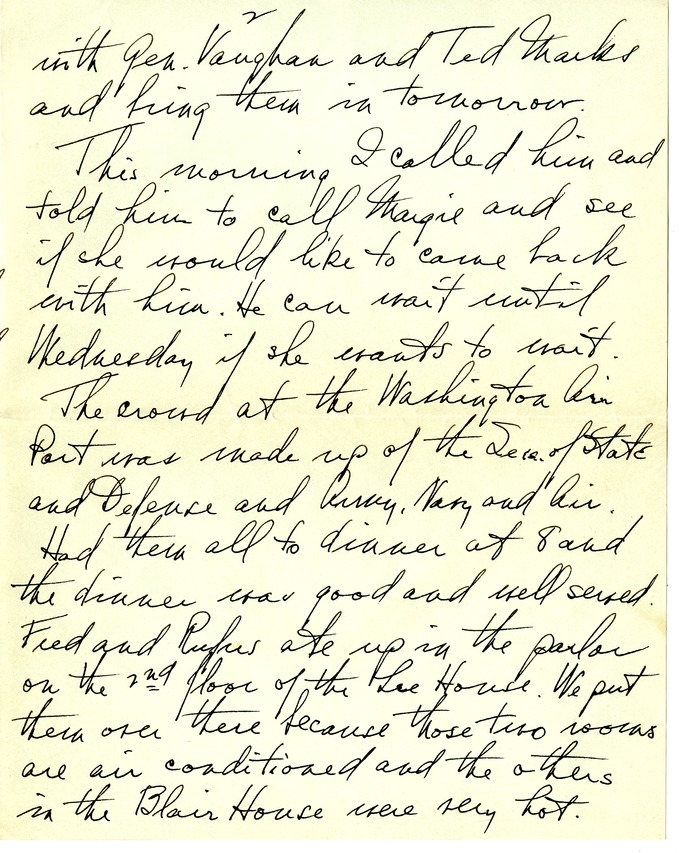 2
with Gen. Vaughan and Ted Marks
and bring them in tomorrow.
This morning I called him and
told him to call Margie and see
if she would like to come back
with him. He can wait until
Wednesday if she wants to wait.
The crowd at the Washington Air
Port was made up of the Secs. of State
and Defense and Army, Navy and Air.
Had them all to dinner at 8 and
the dinner was good and well served.
Fred and Rufus ate up in the parlor
on the 2nd floor of the Lee House. We put
them over there because those two rooms
are air conditioned and the others
in the Blair House were very hot.